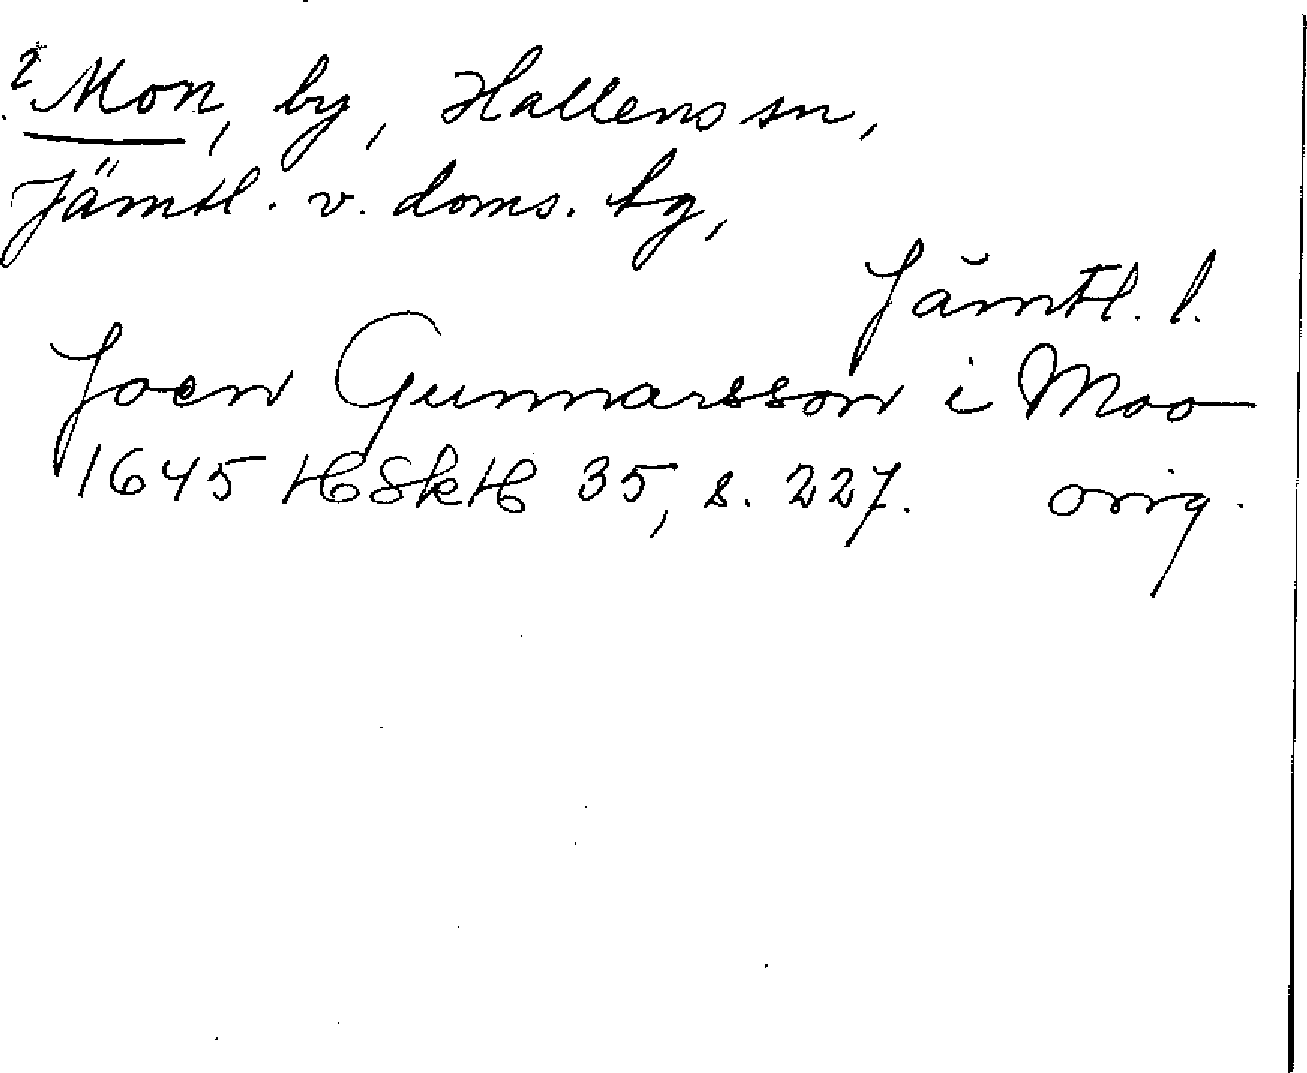 2 Mon, by, Hallens sn,
Jämtl. v. doms. tg,
Jämtl. l.
Joen Gunnarsson i Moo
1645 HSkH 35, s. 227. orig.